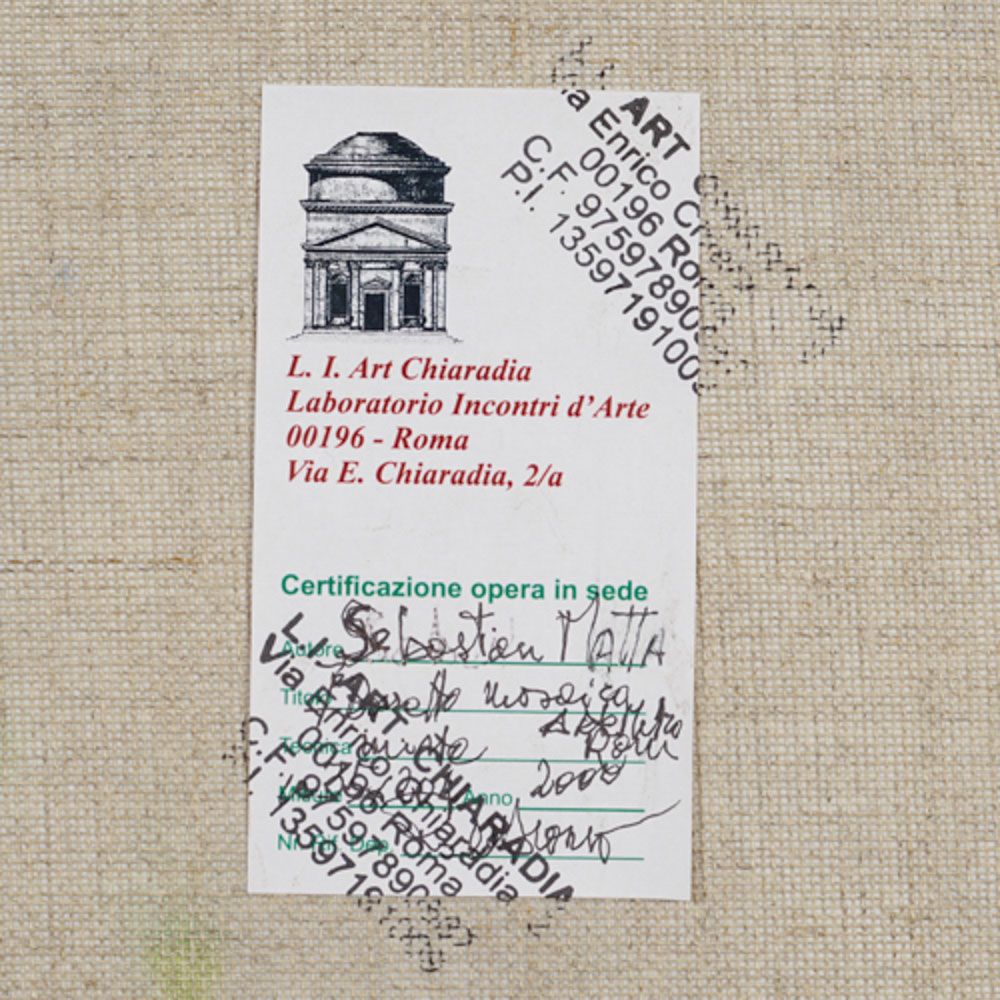 ART
Via Enrico Ch
00196 Roma
C.F. 9759789
P.I. 13597191002
L. I. Art Chiaradia
Laboratorio Incontri d'Arte
00196 - Roma
Via E. Chiaradia, 2/a
Certificazione opera in sede
Autore Sebastian MATTA
Titolo Bozzetto mosaico
Roma
Tecnica mista
2000
Misure Anno
Nr. Rif. Dep.
L.I. ART CHIARADIA
Via Enrico Chiaradia
00196 Roma
C.F. 9759789
P.I. 1359719